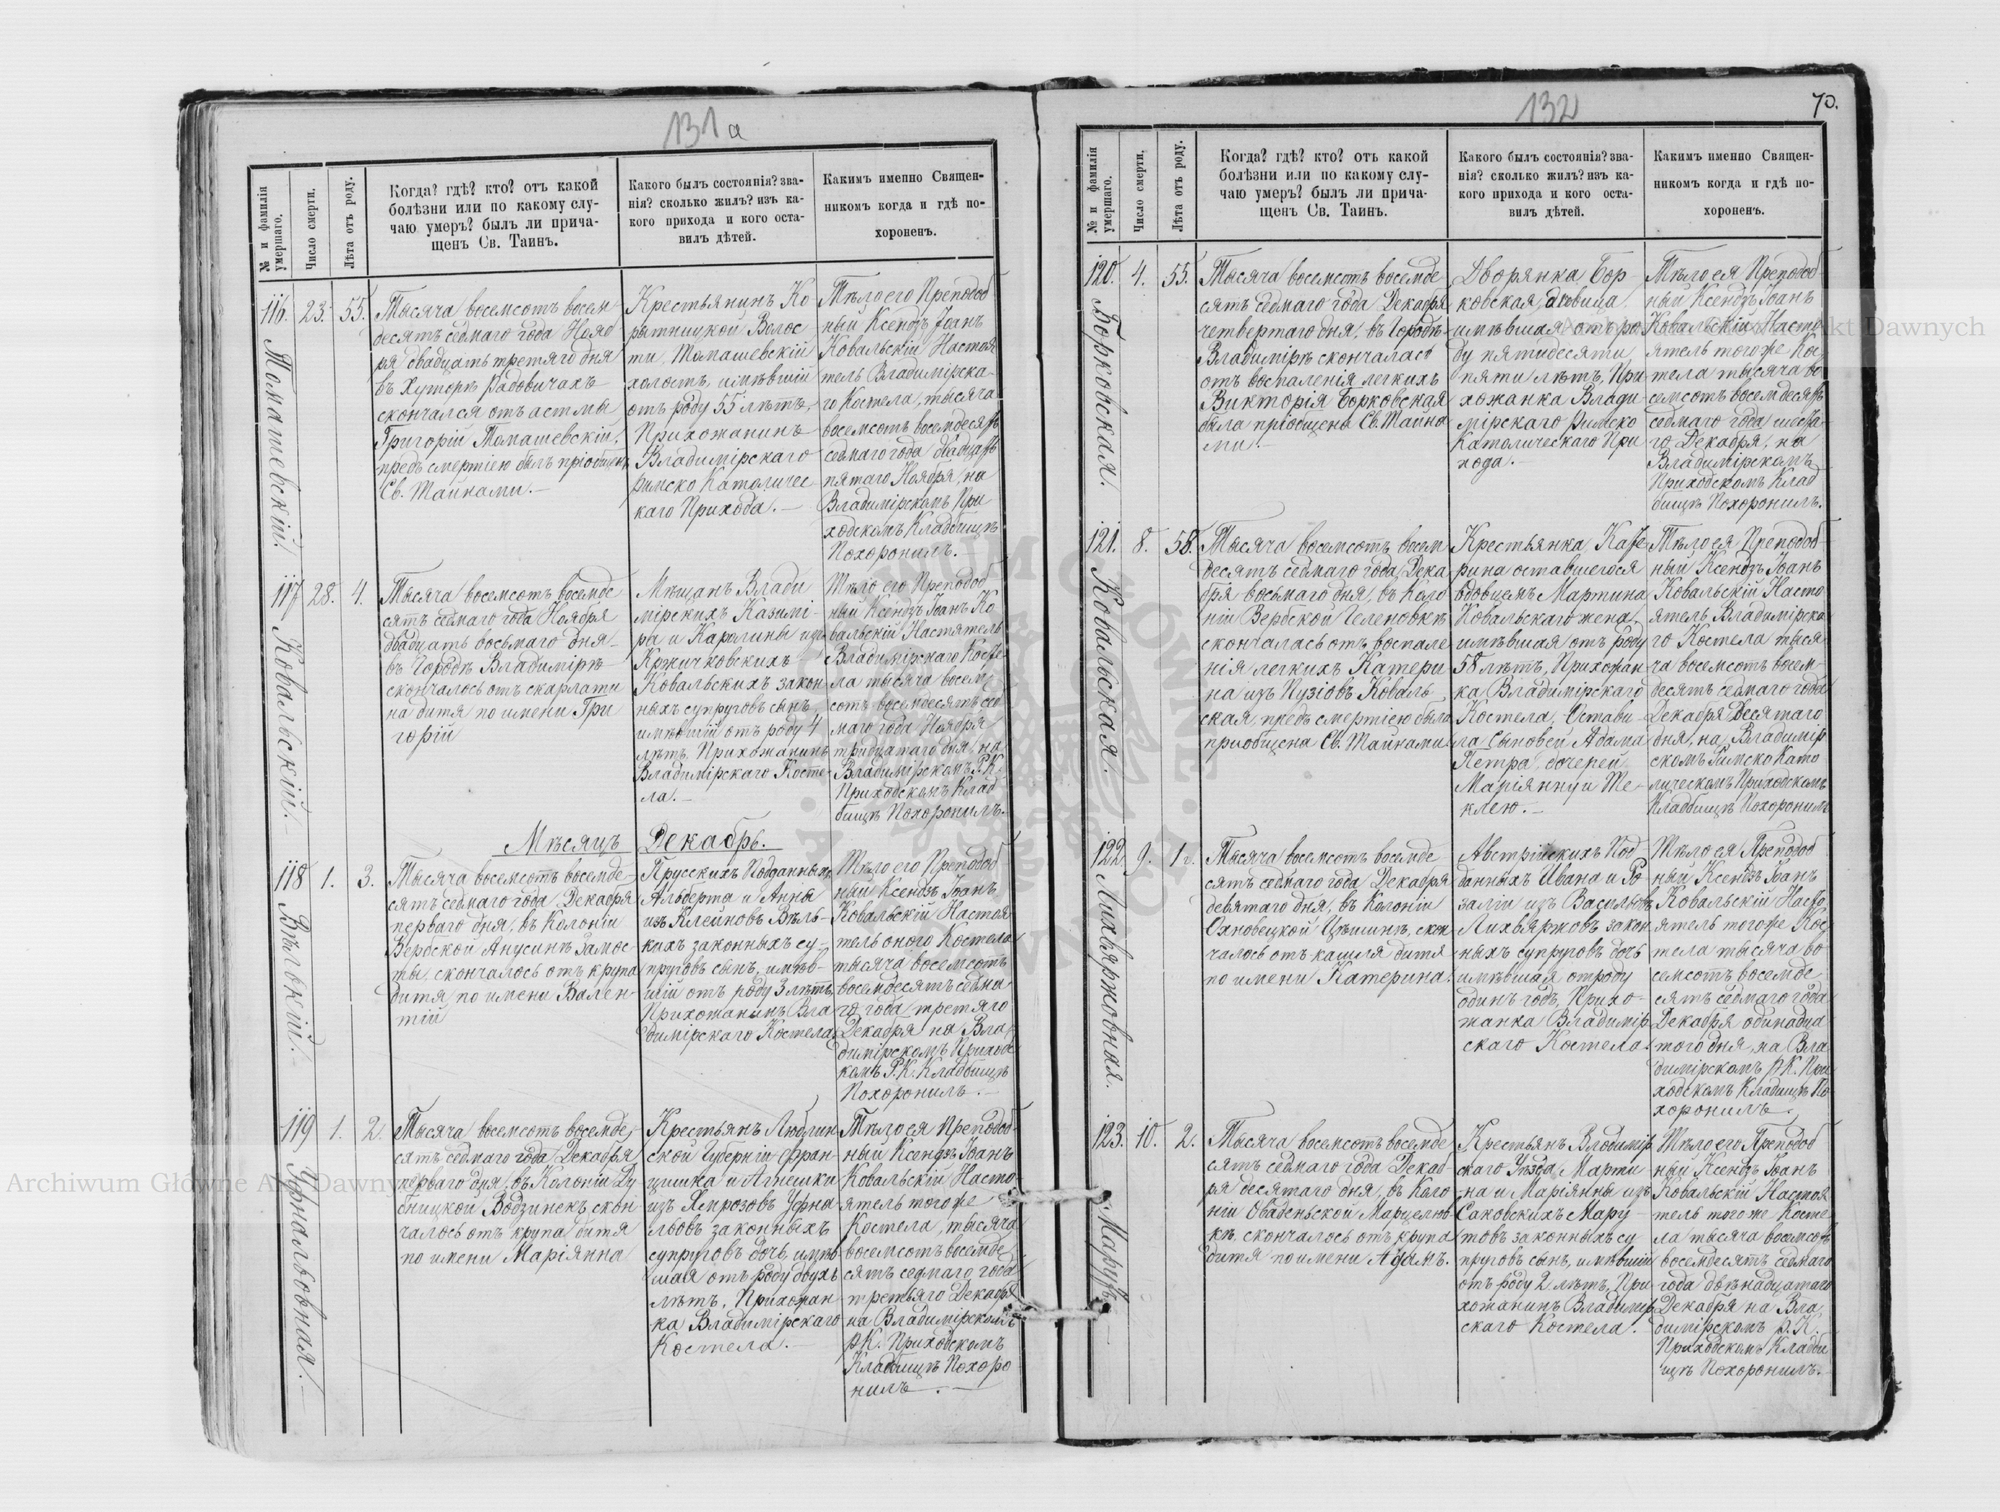 131 a
№ и фамилія умершаго.
Число смерти.
Лѣта отъ роду.
Когда? гдѣ? кто? отъ какой
болѣзни или по какому слу-
чаю умеръ? былъ ли прича-
щенъ Св. Таинъ.
Какого былъ состоянія? зва-
нія? сколько жилъ? изъ ка-
кого прихода и кого оста-
вилъ дѣтей.
Какимъ именно Священ-
никомъ когда и гдѣ по-
хороненъ.
116. Томашевскій.
23.
55.
Тысяча восемсотъ восем
десятъ седмаго года Нояб
ря двадцать третяго дня
въ Хуторѣ Радовичахъ
скончался отъ астмы
Григорій Томашевскій,
предъ смертію былъ пріобщенъ
Св. Тайнами. —
Крестьянинъ Ко
рытницкой Волос
ти, Томашевскій
холостъ, имѣвшій
отъ роду 55 лѣтъ,
Прихожанинъ
Владимірскаго
Римско Католичес
каго Прихода. —
Тѣло его Преподоб
ный Ксендзъ Іоанъ
Ковальскій Настоя
тель Владимірска-
го Костела, тысяча
восемсотъ восемдесятъ
седмаго года двадцать
пятаго Ноября, на
Владимірскомъ При
ходскомъ Кладбищѣ
Похоронилъ.
117 Ковальскій. —
28.
4.
Тысяча восемсотъ восемде
сятъ седмаго года Ноября
двадцать восьмаго дня
въ Городѣ Владимірѣ
скончалось отъ скарлати
на дитя по имени Гри
горій
Мѣщанъ Влади
мірскихъ Казимі-
ра и Каролины изъ
Кржичковскихъ
Ковальскихъ закон
ныхъ супруговъ сынъ,
имѣвшій отъ роду 4
лѣтъ, Прихожанинъ
Владимірскаго Косте-
ла. —
Тѣло его Преподоб-
ный Ксендзъ Іоанъ Ко
вальскій Настятель
Владимірскаго Косте
ла тысяча восем
сотъ восемдесятъ сед
маго года Ноября
тридцатаго дня, на
Владимірскомъ Р.К.
Приходскомъ Клад
бищѣ Похоронилъ.
Мѣсяцъ Декабрь.
118 Вѣльскій.
1.
3.
Тысяча восемсотъ восемде
сятъ седмаго года Декабря
перваго дня, въ Колоніи
Вербской Анусинъ Замос
ты скончалось отъ крупа
дитя, по имени Вален-
тій
Прусскихъ Подданныхъ
Альберта и Анны
изъ Клейновъ Вѣль-
кихъ законныхъ су-
пруговъ сынъ, имѣв-
шій отъ роду 3 лѣтъ,
Прихожанинъ Вла
димірскаго Костела
Тѣло его Преподоб
ный Ксендзъ Іоанъ
Ковальскій Настоя
тель оного Костела
тысяча восемсотъ
восемдесятъ седма
го года третяго
Декабря на Вла
димірскомъ Приходс
комъ Р.К. Кладбищѣ
Похоронилъ. —
119 Уфнальовная. —
1.
2.
Тысяча восемсотъ восемде
сятъ седмаго года Декабря
перваго дня, въ Колоніи Ду
бницкой Водзинекъ скон
чалось отъ крупа дитя
по имени Маріянна
Крестьянъ Люблин
ской Губерніи Фран
цишка и Агнешки
изъ Ямрозовъ Уфна
львовъ законныхъ
супруговъ дочь имѣв
шая отъ роду двухъ
лѣтъ, Прихожан
ка Владимірскаго
Костела. —
Тѣло ея Преподоб-
ный Ксендзъ Іоанъ
Ковальскій Насто
ятель тогоже
Костела, тысяча
восемсотъ восемде
сятъ седмаго года
третьяго Декабря
на Владимірскомъ
Р.К. Приходскомъ
Кладбищѣ Похоро
нилъ. —
132
70.
№ и фамилія умершаго.
Число смерти.
Лѣта отъ роду.
Когда? гдѣ? кто? отъ какой
болѣзни или по какому слу-
чаю умеръ? былъ ли прича-
щенъ Св. Таинъ.
Какого былъ состоянія? зва-
нія? сколько жилъ? изъ ка-
кого прихода и кого оста-
вилъ дѣтей.
Какимъ именно Священ-
никомъ когда и гдѣ по-
хороненъ.
120. Борковская.
4.
55.
Тысяча восемсотъ восемде
сятъ седмаго года Декабря
четвертаго дня, въ Городѣ
Владимірѣ скончалась
отъ воспаленія легкихъ
Викторія Борковская
была пріобщена Св. Тайна
ми. —
Дворянка Бор
ковская, вдовица.
имѣвшая отъ ро
ду пятидесяти
пяти лѣтъ, При
хожанка Влади
мірскаго Римско
Католическаго При
хода. —
Тѣло ея Преподоб-
ный Ксендзъ Іоанъ
Ковальскій Насто
ятель тогоже Кос
тела тысяча во
семсотъ восемдесятъ
седмаго года шеста
го Декабря, на
Владимірскомъ
Приходскомъ Клад
бищѣ Похоронилъ.
121. Ковальская.
8.
58.
Тысяча восемсотъ восем
десятъ седмаго года, Дека
бря восьмаго дня, въ Коло
ніи Вербской Геленовкѣ
скончалась отъ воспале
нія легкихъ Катери
на изъ Пузіовъ Коваль
ская, предъ смертію была
пріобщена Св. Тайнами
Крестьянка, Кате
рина оставшегося
вдовцемъ Мартина
Ковальскаго жена,
имѣвшая отъ роду
58 лѣтъ, Прихожан
ка Владимірскаго
Костела, Остави
ла Сыновей Адама
Петра, дочерей
Маріянну и Те-
клею. —
Тѣло ея, Преподоб-
ный Ксендзъ Іоанъ
Ковальскій Насто
ятель, Владимірска
го Костела тыся
ча восемсотъ восем-
десятъ седмаго года
Декабря Десятаго
дня, на Владимір
скомъ Римско Като
лическомъ Приходскомъ
Кладбищѣ Похоронилъ
122 Лихвяржовная.
9.
1 г.
Тысяча восемсотъ восемде
сятъ седмаго года Декабря
девятаго дня, въ Колоніи
Охновецкой Цѣшинѣ, скон
чалось отъ кашля дитя
по имени Катерина.
Австрійскихъ Под
данныхъ Ивана и Ро
заліи изъ Васольовъ
Лихвяржовъ закон
ныхъ супруговъ дочь
имѣвшая отроду
одинъ годъ, Прихо-
жанка Владимір
скаго Костела.
Тѣло ея Преподоб
ный Ксендзъ Іоанъ
Ковальскій Насто
ятель тогоже Кос
тела тысяча во
семсотъ восемде
сятъ седмаго года
Декабря одинадца
того дня, на Вла
димірскомъ Р.К. При
ходскомъ Кладбищѣ По
хоронилъ.
123. Марутъ.
10.
2.
Тысяча восемсотъ восемде
сятъ седмаго года Декаб
ря десятаго дня, въ Коло
ніи Оваденьской Марцелюв
кѣ, скончалось отъ крупа
дитя по имени Адамъ.
Крестьянъ Владимір
скаго Уѣзда, Марти
на и Маріянны изъ
Саковскихъ Мару-
товъ законныхъ су
пруговъ сынъ, имѣвшій
отъ роду 2 лѣтъ, При
хожанинъ Владимір
скаго Костела.
Тѣло его Преподоб
ный Ксендзъ Іоанъ
Ковальскій Настоя
тель тогоже Косте
ла тысяча восемсотъ
восемдесятъ седмаго
года двѣнадцатаго
Декабря на Вла
димірскомъ Р.К.
Приходскомъ Кладби
щѣ Похоронилъ.